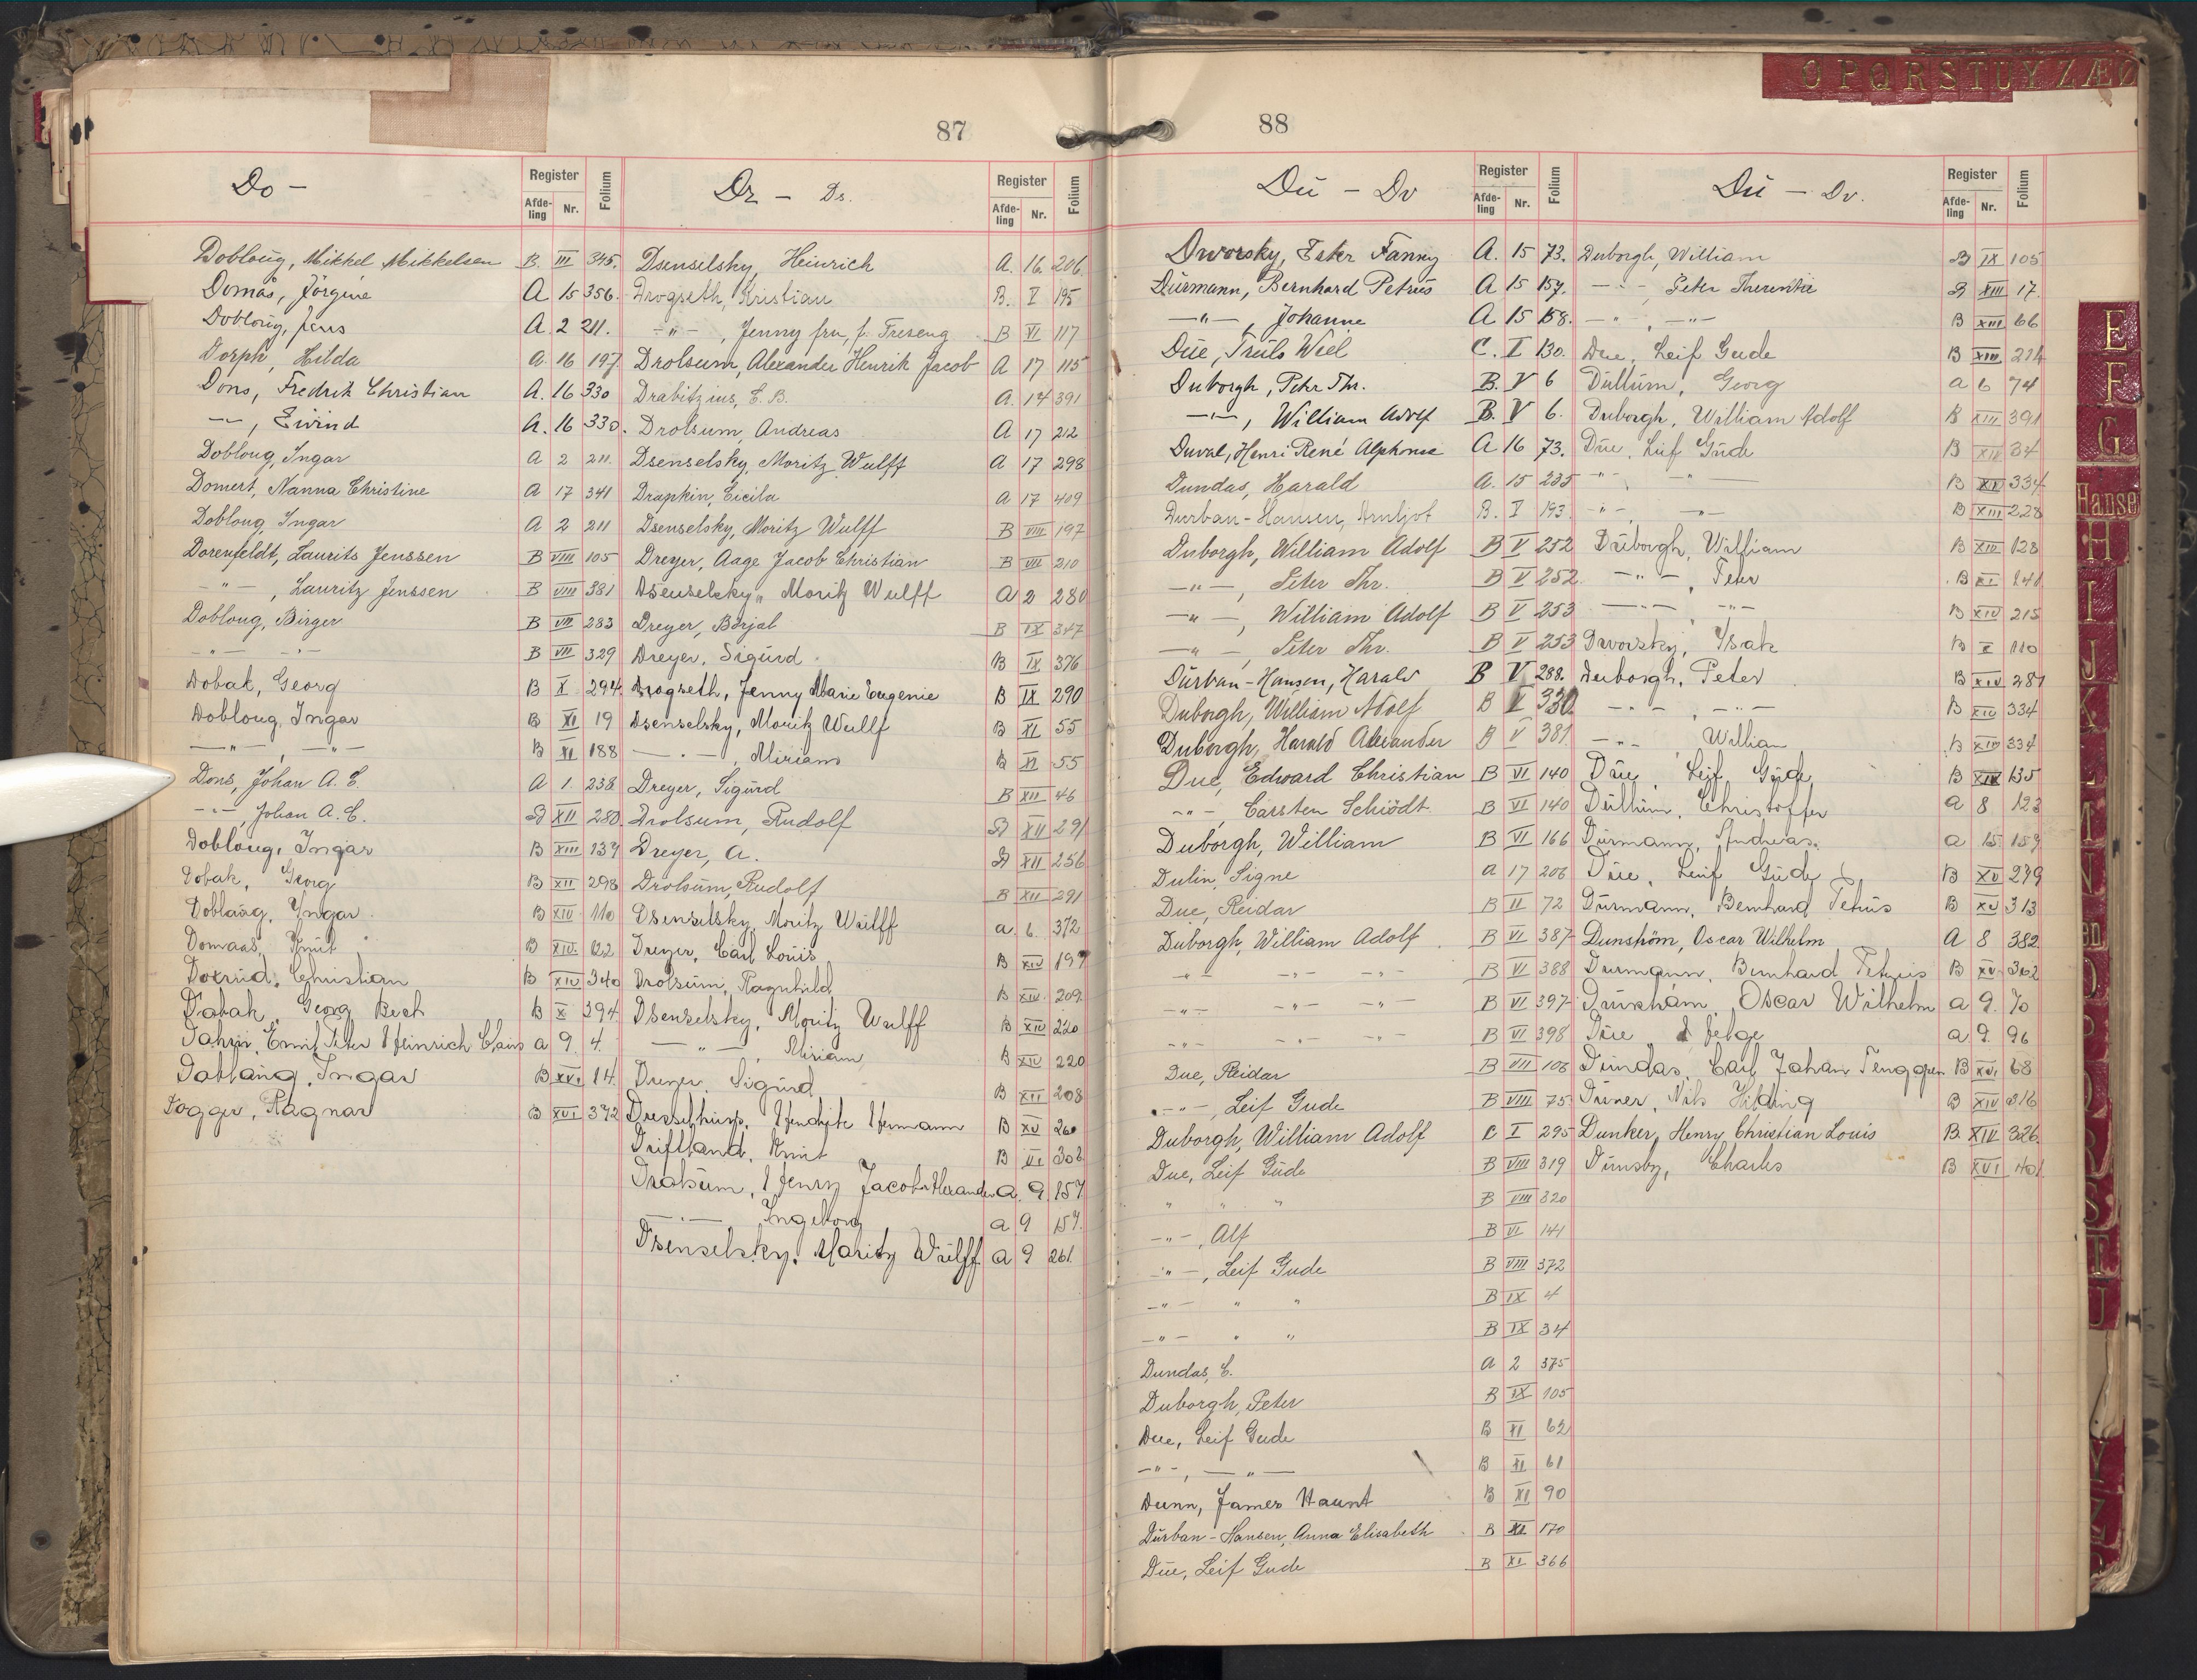 87
Do –
Register
Afde-ling Nr. Folium
Dobloug, Mikkel Mikkelsen B. III 345.
Domås, Jörgine A 15 356.
Dobloug, Jens A. 2 211.
Dorph, Hilda A. 16 197
Dons, Fredrik Christian A. 16 330
–"–, Eivind A. 16 330.
Dobloug, Ingar A 2 211.
Domert, Nanna Christine A 17 341
Dobloug, Ingar A 2 211
Dorenfeldt, Laurits Jenssen B VIII 105
–"–, Lauritz Jenssen B VIII 381
Dobloug, Birger B VII 283
–"– –"– B VII 329
Dobak, Georg B X 294
Dobloug, Ingar B XI 19
–"–, –"– B XI 188
Dons, Johan A. C. A 1 238
–"–, Johan A. C. B XII 280
Dobloug, Ingar B XIII 137
Dobak, Georg B XII 298
Doblaug, Yngar B XIV 110
Domaas, Knut B XIV 122
Doxrud, Christian B XIV 340
Dobak, Georg Bech B X 294
Dahm, Emil Peter Heinrich Claus a 9. 4.
Doblaug, Ingar B XVI 14
Dogger, Ragnar B XVI 372
Dr – Ds.
Register
Afde-ling Nr. Folium
Dsenselsky, Heinrich A. 16. 206.
Drogseth, Kristian B. V 195
–"–, Jenny fru, f. Treseng B VI 117
Drolsum, Alexander Henrik Jacob A 17 115
Drabitzius, C. B. A. 14 391
Drolsum, Andreas A 17 212
Dsenselsky, Moritz Wulff A 17 298
Drapkin, Cicila A 17 409
Dsenselsky, Moritz Wulff B VIII 197
Dreyer, Aage Jacob Christian B VII 210
Dsenselsky, Moritz Wulff A 2 280
Dreyer, Borjal B IX 347
Dreyer, Sigurd B IX 376
Drogseth, Jenny Marie Eugenie B IX 290
Dsenselsky, Moritz Wulff B XI 55
–"–, Miriam B XI 55
Dreyer, Sigurd B XII 46
Drolsum, Rudolf B XII 291
Dreyer, A. B XII 256
Drolsum, Rudolf B XII 291
Dsenselsky, Moritz Wulff a. 6. 372
Dreyer, Carl Louis B XIV 197
Drolsum, Ragnhild B XIV 209.
Dsenselsky, Moritz Wulff B XIV 220
–"–, Miriam B XIV 220
Dreyer, Sigurd B XII 208
Hermann B XV 260
Driftland, Knut B VI 302
Drolsum, Henry Jacob Alexander a. 9 157
–"– Ingeborg a 9 157.
Dsenselsky, Moritz Wulff a 9 261.
88
Du – Dv
Register
Afde-ling Nr. Folium
Dworsky, Ester Fanny A. 15 73.
Dürmann, Bernhard Petrus A 15 157.
–"–, Johanne A 15 158.
Due, Truls Wiel C. I 130.
Duborgh, Peter Thr. B. V 6
–"–, William Adolf B. V 6.
Duval, Henri René Alphonse A 16 73.
Dundas, Harald A. 15 235
Durban-Hansen, Arnljot B. V 193.
Duborgh, William Adolf B V 252
–"–, Peter Thr. B V 252.
–"–, William Adolf B V 253
–"–, Peter Thr. B V 253
Durban-Hansen, Harald B V 288.
Duborgh, William Adolf B V 330
Duborgh, Harald Alexander B V 381
Due, Edward Christian B VI 140
–"–, Carsten Schiödt B VI 140
Duborgh, William B VI 166
Dulin, Signe A 17 206
Due, Reidar B II 72
Duborgh, William Adolf B VI 387
–"– –"– –"– B VI 388
–"– –"– –"– B VI 397
–"– –"– –"– B VI 398
Due, Reidar B VII 106
–"–, Leif Gude B VIII 75
Duborgh, William Adolf C I 295
Due, Leif Gude B VIII 319
" " " B VIII 320
–"–, Alf B VI 141
–"–, Leif Gude B VIII 372
–"– " " B IX 4
–"– " " B IX 34
Dundas, C. A 2 375
Duborgh, Peter B IX 105
Due, Leif Gude B XI 62
–"–, –"– B XI 61
Dunn, James Haunt B XI 90
Durban-Hansen, Anna Elisabeth B XI 170
Due, Leif Gude B XI 366
Du – Dv.
Register
Afde-ling Nr. Folium
Duborgh, William B IX 105
–"–, Peter B XIII 17.
–"–, –"– B XIII 66
Due, Leif Gude B XIII
Dullum, Georg a 6 74
Duborgh, William Adolf B XIII 391
Due, Leif Gude B XIV 34
–"– –"– B 334
–"–, –"– B XIII 228
Duborgh, William B XIV 128
–"–, Peter B XI 241
–"– –"– B XIV 215
Dworsky, Isak B X 110
Duborgh, Peter B XIV 287
–"–, –"– B XIV 334
–"– William B XIV 334
Due, Leif Gude B XIV 135
Dullum, Christoffer a 8 123
Durmann, Andreas. a 15 159
Due, Leif Gude B XV 239
Durmann, Bernhard Petrus B XV 313
Dunström, Oscar Wilhelm A 8 382
Durmann, Bernhard Petrus B XV 362
Oscar Wilhelm a 9. 70
Due, Helge a. 9. 96
Dundas, Carl Johan Tenggren B XVI 68
Nils Hilding B XIV 316
Dunker, Henry Christian Louis B. XIV 326
Durnsby, Charles B XVI 401
O P Q R S T U Y Z Æ Ø
E
F
G
Hanse
H
I
J
K
L
M
N
O
S
T
U
Y
Z